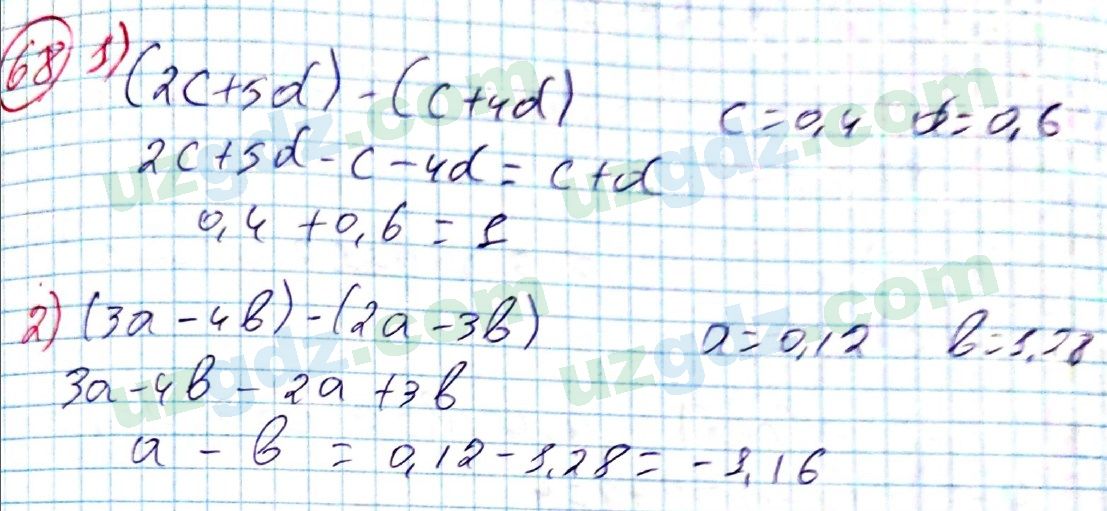 68 1) (2c+5d)-(c+4d) c=0,4 d=0,6
2c+5d-c-4d=c+d
0,4+0,6=1
2) (3a-4b)-(2a-3b) a=0,12 b=1,28
3a-4b-2a+3b
a-b=0,12-1,28=-1,16
uzgdz.com
uzgdz.com
uzgdz.com
uzgdz.com